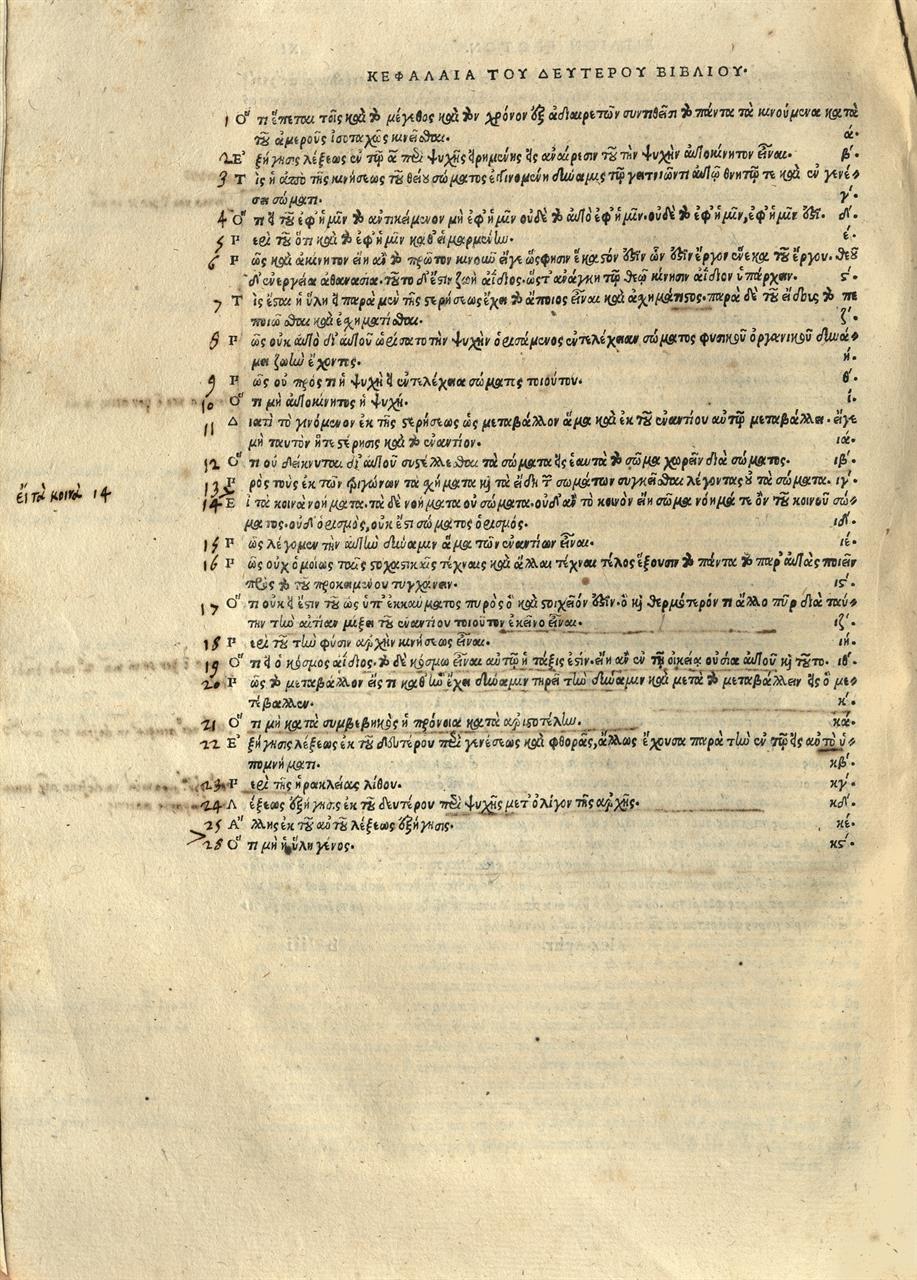 ΚΕΦΑΛΑΙΑ ΤΟΥ ΔΕΥΤΕΡΟΥ ΒΙΒΛΙΟΥ·
1 Ὅτι ἕπεται τοῖς καὶ τὸ μέγεθος καὶ τὸν χρόνον ἐξ ἀδιαιρετῶν συντιθεῖσι τὸ πάντα τὰ κινούμενα κατὰ
τοῦ ἀμεροῦς ἰσοταχῶς κινεῖσθαι. ά.
2 Ἐξήγησις λέξεως ἐν τῷ ᾶ περὶ ψυχῆς εἰρημένης εἰς ἀναίρεσιν τοῦ τὴν ψυχὴν αὐτοκίνητον εἶναι. β΄.
3 Τίς ἡ ἀπὸ τῆς κινήσεως τοῦ θείου σώματος ἐγγινομένη δύναμις τῷ γειτνιῶντι αὐτῷ θνητῷ τε καὶ ἐν γενέ-
σει σώματι. γ΄.
4 Ὅτι εἰ τοῦ ἐφ' ἡμῖν τὸ ἀντικείμενον μὴ ἐφ' ἡμῖν οὐδὲ τὸ αὐτὸ ἐφ' ἡμῖν. οὐδὲ τὸ ἐφ' ἡμῖν, ἐφ' ἡμῖν ἐστίν. δ΄.
5 Περὶ τοῦ ὅτι καὶ τὸ ἐφ' ἡμῖν καθ' εἱμαρμένην. έ.
6 Πῶς καὶ ἀκίνητον εἴη ἂν τὸ πρῶτον κινοῦν εἴγε ὥς φησιν ἕκαστόν ἐστιν ὧν ἐστὶν ἔργον ἕνεκα τοῦ ἔργου. θεοῦ
δ' ἐνέργεια ἀθανασία. τοῦτο δ' ἔστιν ζωὴ ἀΐδιος, ὥστ' ἀνάγκη τῷ θεῷ κίνησιν ἀΐδιον ὑπάρχειν. ς΄.
7 Τίς ἔσται ἡ ὕλη εἰ παρὰ μὲν τῆς στερήσεως ἔχει τὸ ἄποιος εἶναι καὶ ἀχημάτιστος. παρὰ δὲ τοῦ εἴδους τὸ πε
ποιῶσθαι καὶ ἐσχηματίσθαι. ζ΄.
8 Πῶς οὐκ αὐτὸ δι' αὑτοῦ ὡρίσατο τὴν ψυχὴν ὁρισάμενος ἐντελέχειαν σώματος φυσικοῦ ὀργανικοῦ δυνά-
μει ζωὴν ἔχοντος. ή.
9 Πῶς οὐ πρός τι ἡ ψυχὴ εἰ ἐντελέχεια σώματος τοιούτου. θ΄.
10 Ὅτι μὴ αὐτοκίνητος ἡ ψυχή. ί.
11 Διατὶ τὸ γινόμενον ἐκ τῆς στερήσεως ὡς μεταβάλλον ἅμα καὶ ἐκ τοῦ ἐναντίου αὐτῷ μεταβάλλει. εἴγε
μὴ ταυτὸν ἥ τε στέρησις καὶ τὸ ἐναντίον. ιά.
12 Ὅτι οὐ δείκνυται δι' αὐτοῦ συστέλλεσθαι τὰ σώματα εἰς ἑαυτὰ τὸ σῶμα χωρεῖν διὰ σώματος. ιβ΄.
13 Πρὸς τοὺς ἐκ τῶν τριγώνων τὰ σχήματα καὶ τὰ εἴδη τῶν σωμάτων συγκεῖσθαι λέγοντας οὐ τὰ σώματα. ιγ΄.
εἰ τὰ κοινὰ 14
14 Εἰ τὰ κοινὰ νοήματα. τὰ δὲ νοήματα οὐ σώματα. οὐδ' ἂν τὸ κοινὸν εἴη σῶμα νόημά τε ὂν τοῦ κοινοῦ σώ-
ματος. οὐδ' ὁρισμός, οὐκ ἔστι σώματος ὁρισμός. ιδ΄.
15 Πῶς λέγομεν τὴν αὐτὴν δύναμιν ἅμα τῶν ἐναντίων εἶναι. ιέ.
16 Πῶς οὐχ ὁμοίως ταῖς στοχαστικαῖς τέχναις καὶ ἄλλαι τέχναι τέλος ἕξουσιν τὸ πάντα τὸ παρ' αὐτὰς ποιεῖν
πρὸς τὸ τοῦ προκειμένου τυγχάνειν. ις΄.
17 Ὅτι οὐκ εἰ ἔστιν τοῦ ὡς ὑπεκκαύματος πυρὸς ὃ καὶ στοιχεῖόν ἐστιν. ὃ καὶ θερμότερόν τι ἄλλο πῦρ διὰ ταύ-
την τὴν αἰτίαν μίξει τοῦ ἐναντίου τοιοῦτον ἐκεῖνο εἶναι. ιζ΄.
18 Περὶ τοῦ τὴν φύσιν ἀρχὴν κινήσεως εἶναι. ιή.
19 Ὅτι εἰ ὁ κόσμος ἀΐδιος. τὸ δὲ κόσμῳ εἶναι αὐτῷ ἡ τάξις ἐστίν. εἴη ἂν ἐν τῇ οἰκείᾳ οὐσίᾳ αὐτοῦ καὶ τοῦτο. ιθ΄.
20 Πῶς τὸ μεταβάλλον εἴς τι καθ' ἣν ἔχει δύναμιν τηρεῖ τὴν δύναμιν καὶ μετὰ τὸ μεταβάλλειν εἰς ὃ με-
τέβαλλεν. κ΄.
21 Ὅτι μὴ κατὰ συμβεβηκὸς ἡ πρόνοια κατὰ ἀριστοτέλην. κά.
22 Ἐξήγησις λέξεως ἐκ τοῦ δευτέρου περὶ γενέσεως καὶ φθορᾶς, ἄλλως ἔχουσα παρὰ τὴν ἐν τῷ εἰς αὐτὸ ὑ-
πομνήματι. κβ΄.
23 Περὶ τῆς ἡρακλείας λίθου. κγ΄.
24 Λέξεως ἐξήγησις ἐκ τοῦ δευτέρου περὶ ψυχῆς μετ' ὀλίγον τῆς ἀρχῆς. κδ΄.
25 Ἄλλης ἐκ τοῦ αὐτοῦ λέξεως ἐξήγησις. κέ.
28 Ὅτι μὴ ἡ ὕλη γένος. κς΄.